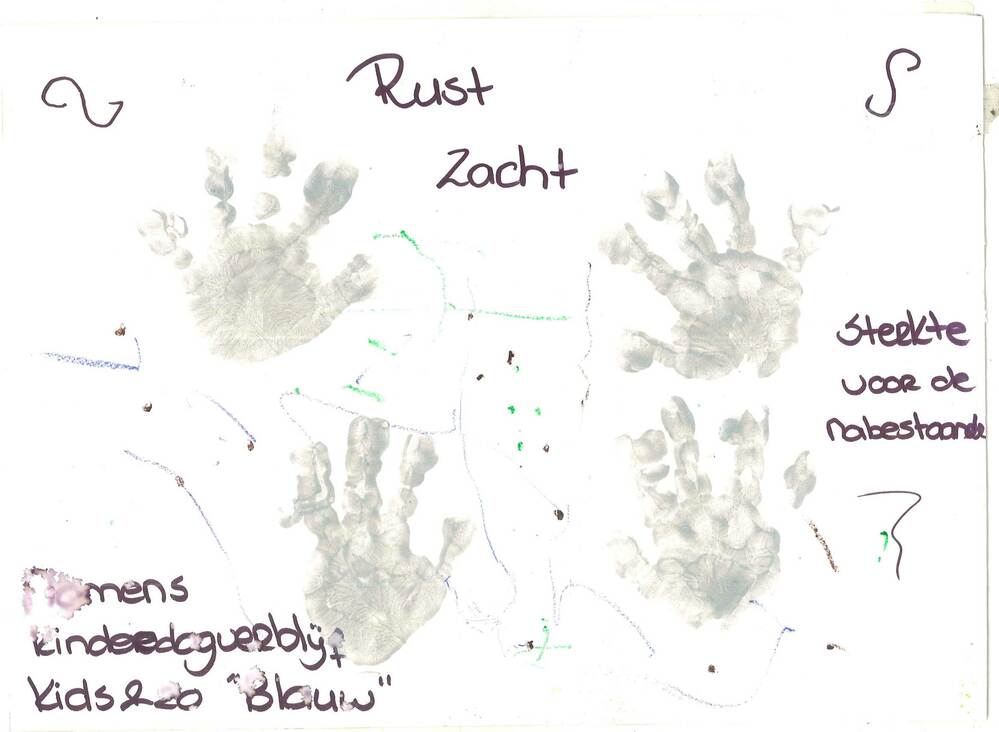 Rust
Zacht
Sterkte
voor de
nabestaande
kinderdagverblijf
Kids&zo "Blauw"